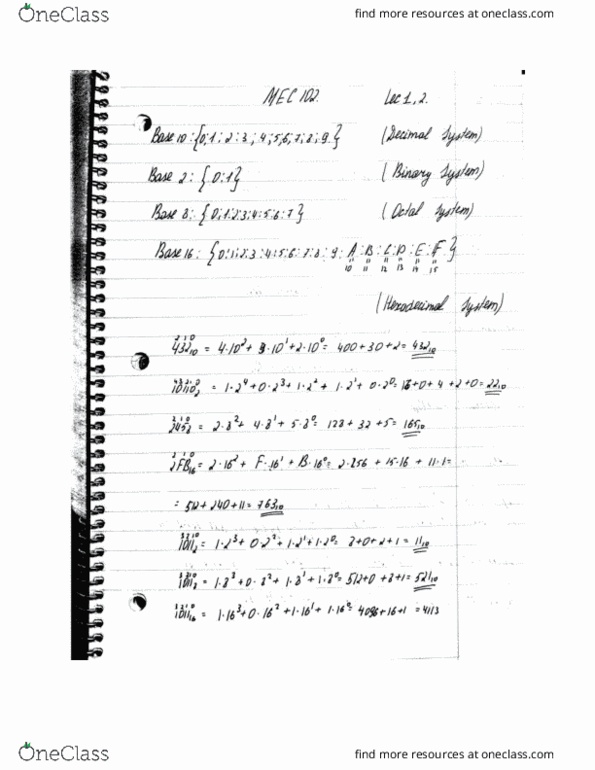 OneClass find more resources at oneclass.com
MEC 102. Lec 1, 2.
Base 10 : {0;1;2;3;4;5;6;7;8;9.} (Decimal System)
Base 2 : {0;1} (Binary System)
Base 8 : {0;1;2;3;4;5;6;7} (Octal System)
Base 16 : {0;1;2;3;4;5;6;7;8;9;A;B;C;D;E;F}
" " " " " "
10 11 12 13 14 15
(Hexodecimal System)
2 1 0
432₁₀ = 4·10² + 3·10¹ + 2·10⁰ = 400 + 30 + 2 = 432₁₀
4 3 2 1 0
10110₂ = 1·2⁴ + 0·2³ + 1·2² + 1·2¹ + 0·2⁰ = 16 + 0 + 4 + 2 + 0 = 22₁₀
2 1 0
245₈ = 2·8² + 4·8¹ + 5·8⁰ = 128 + 32 + 5 = 165₁₀
2 1 0
2FB₁₆ = 2·16² + F·16¹ + B·16⁰ = 2·256 + 15·16 + 11·1 =
= 512 + 240 + 11 = 763₁₀
3 2 1 0
1011₂ = 1·2³ + 0·2² + 1·2¹ + 1·2⁰ = 8 + 0 + 2 + 1 = 11₁₀
3 2 1 0
1011₈ = 1·8³ + 0·8² + 1·8¹ + 1·8⁰ = 512 + 0 + 8 + 1 = 521₁₀
3 2 1 0
1011₁₆ = 1·16³ + 0·16² + 1·16¹ + 1·16⁰ = 4096 + 16 + 1 = 4113
OneClass find more resources at oneclass.com